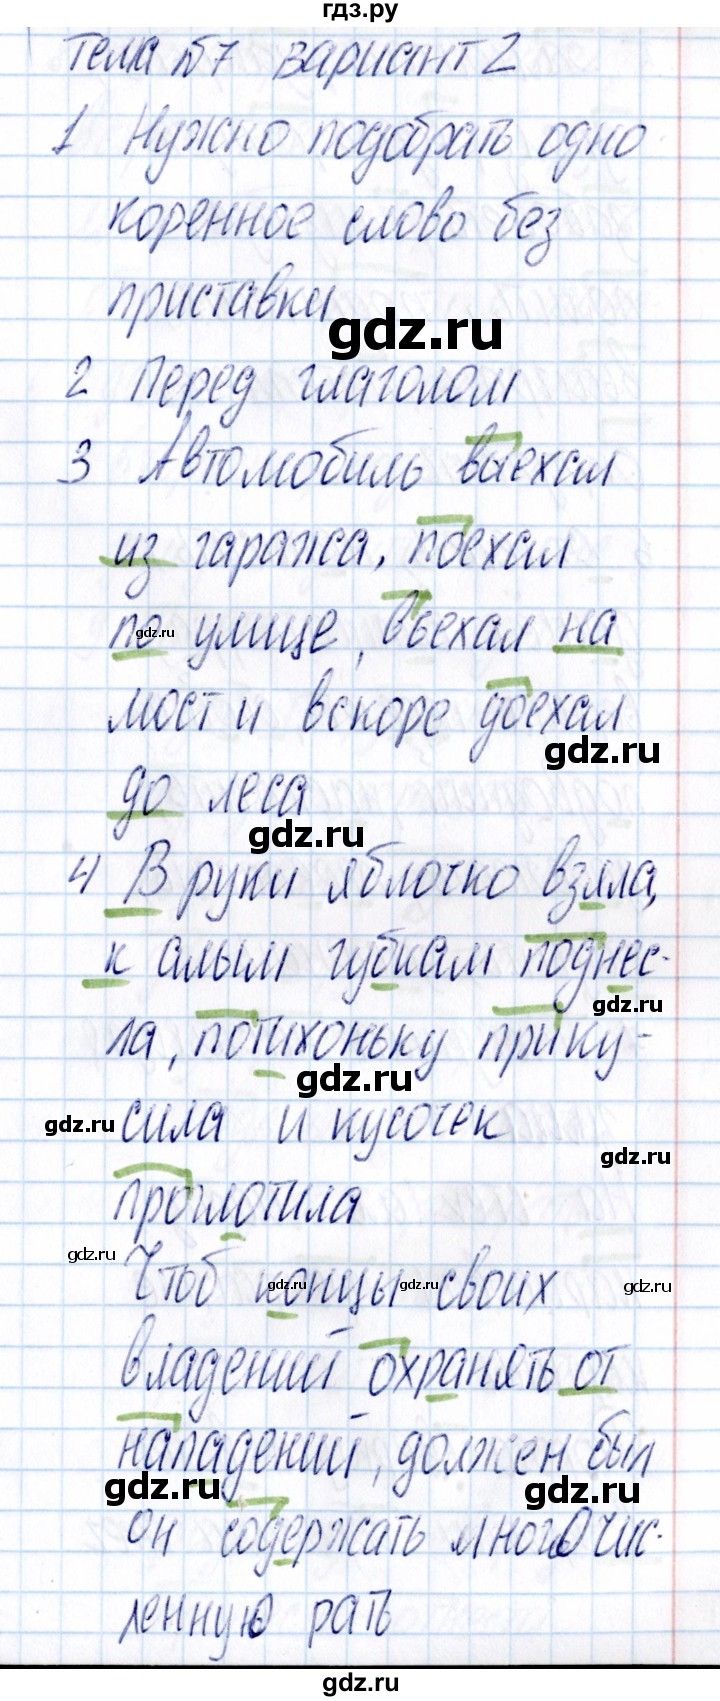 гдз.ру
Тема №7 вариант 2
1 Нужно подобрать одно
коренное слово без
приставки
gdz.ru
2 Перед глаголом
3 Автомобиль выехал
из гаража, поехал
по улице, въехал на
gdz.ru
мост и вскоре доехал
gdz.ru
до леса
gdz.ru
4 В руки яблочко взяла,
к алым губкам поднес-
gdz.ru
ла, потихоньку прику-
gdz.ru
gdz.ru
сила и кусочек
gdz.ru
проглотила
gdz.ru
Чтоб концы своих
gdz.ru gdz.ru gdz.ru
владений охранять от
нападений, должен был
gdz.ru gdz.ru
он содержать многочис-
ленную рать
gdz.ru